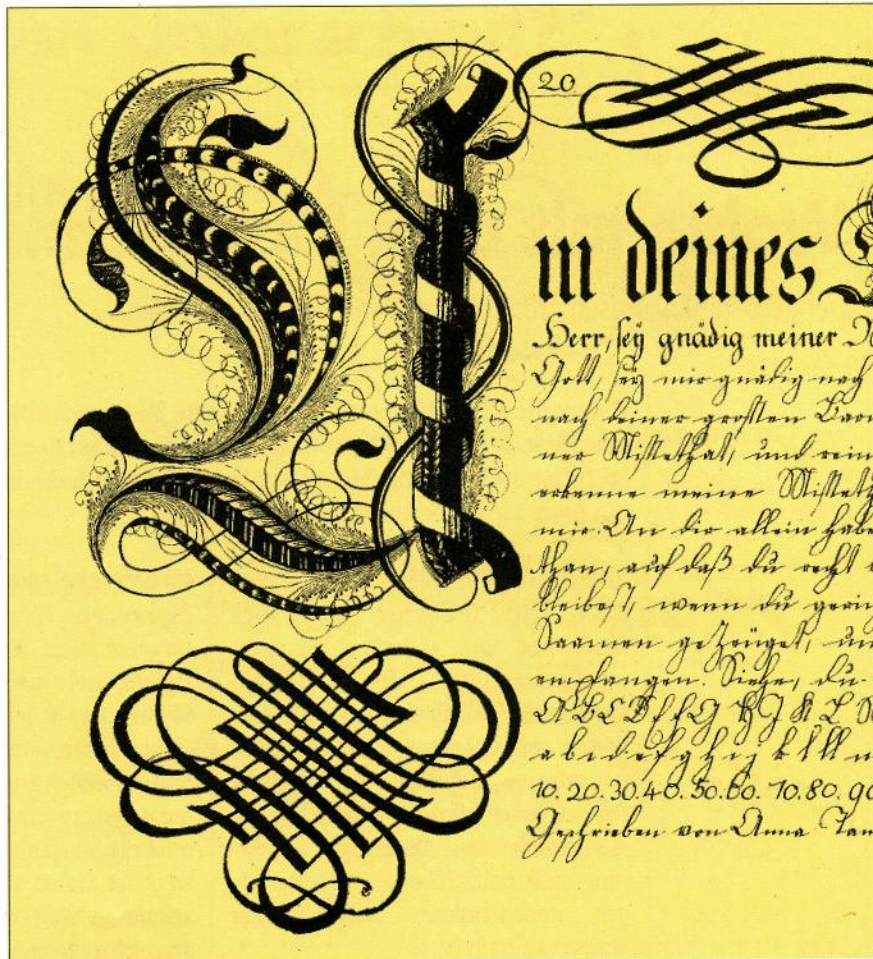 20
deines
Herr, sey gnädig meiner
Gott, sey mir gnädig nach
nach deiner grossen Barm
ner Missethat, und rein
erkenne meine Misseth
mir. An dir allein habe
than, auf daß du recht
bleibest, wenn du geri
Saamen gezeuget, un
empfangen. Siehe, du
A B C D E F G H J K L
a b c d e f g h i j k l l m
10. 20. 30. 40. 50. 60. 70. 80. 90
Geschrieben von Anna Tan